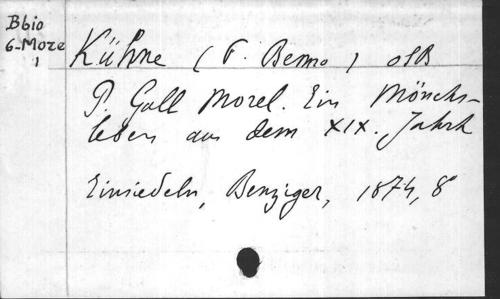 Bbio
6-More
1
Kühne (P. Benno) OSB
P. Gall Morel. Ein Mönchs-
leben aus dem XIX. Jahrh
Einsiedeln, Benziger, 1874, 8°